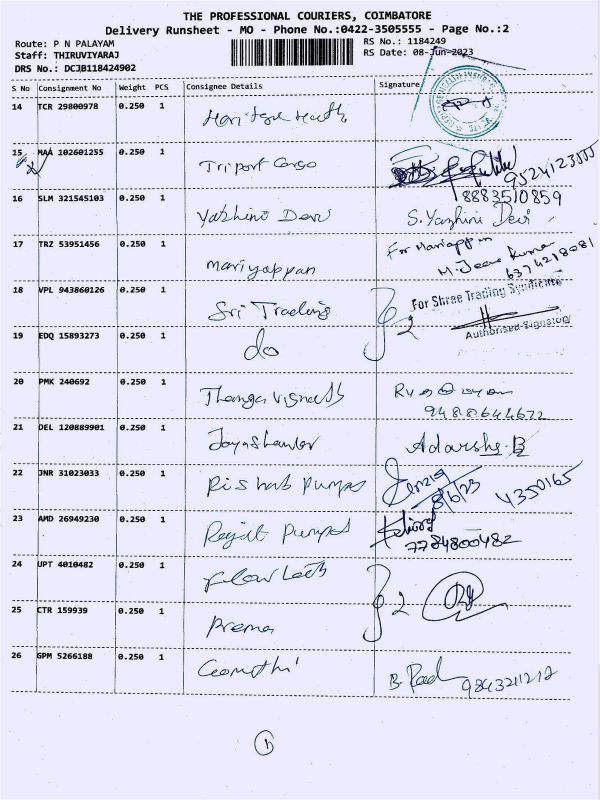 THE PROFESSIONAL COURIERS, COIMBATORE
Delivery Runsheet - MO - Phone No.:0422-3505555 - Page No.:2
Route: P N PALAYAM
RS No.: 1184249
Staff: THIRUVIYARAJ
RS Date: 08-Jun-2023
DRS No.: DCJB118424902
S No Consignment No Weight PCS Consignee Details Signature
14 TCR 29800978 0.250 1
15 MAA 102601255 0.250 1 Triport Cargo 9524123555
16 SLM 321545103 0.250 1 Yazhini Devi 8883510859 S. Yazhini Devi
17 TRZ 53951456 0.250 1 mariyappan For Mariappan
6374218081
18 VPL 943860126 0.250 1 Sri Trading 2 For Shree Trading Syndicate
Authorised Signatory
19 EDQ 15893273 0.250 1 do
20 PMK 240692 0.250 1
9488644672
21 DEL 120889901 0.250 1 Jayashanker Adarsh. B
22 JNR 31023033 0.250 1 Rishab Pumps 8/6/23 4350165
23 AMD 26949230 0.250 1 Rajat Pumps
7784800482
24 UPT 4010482 0.250 1 2
25 CTR 159939 0.250 1 Prema
26 GPM 5266188 0.250 1 Gomathi 9843211212
1